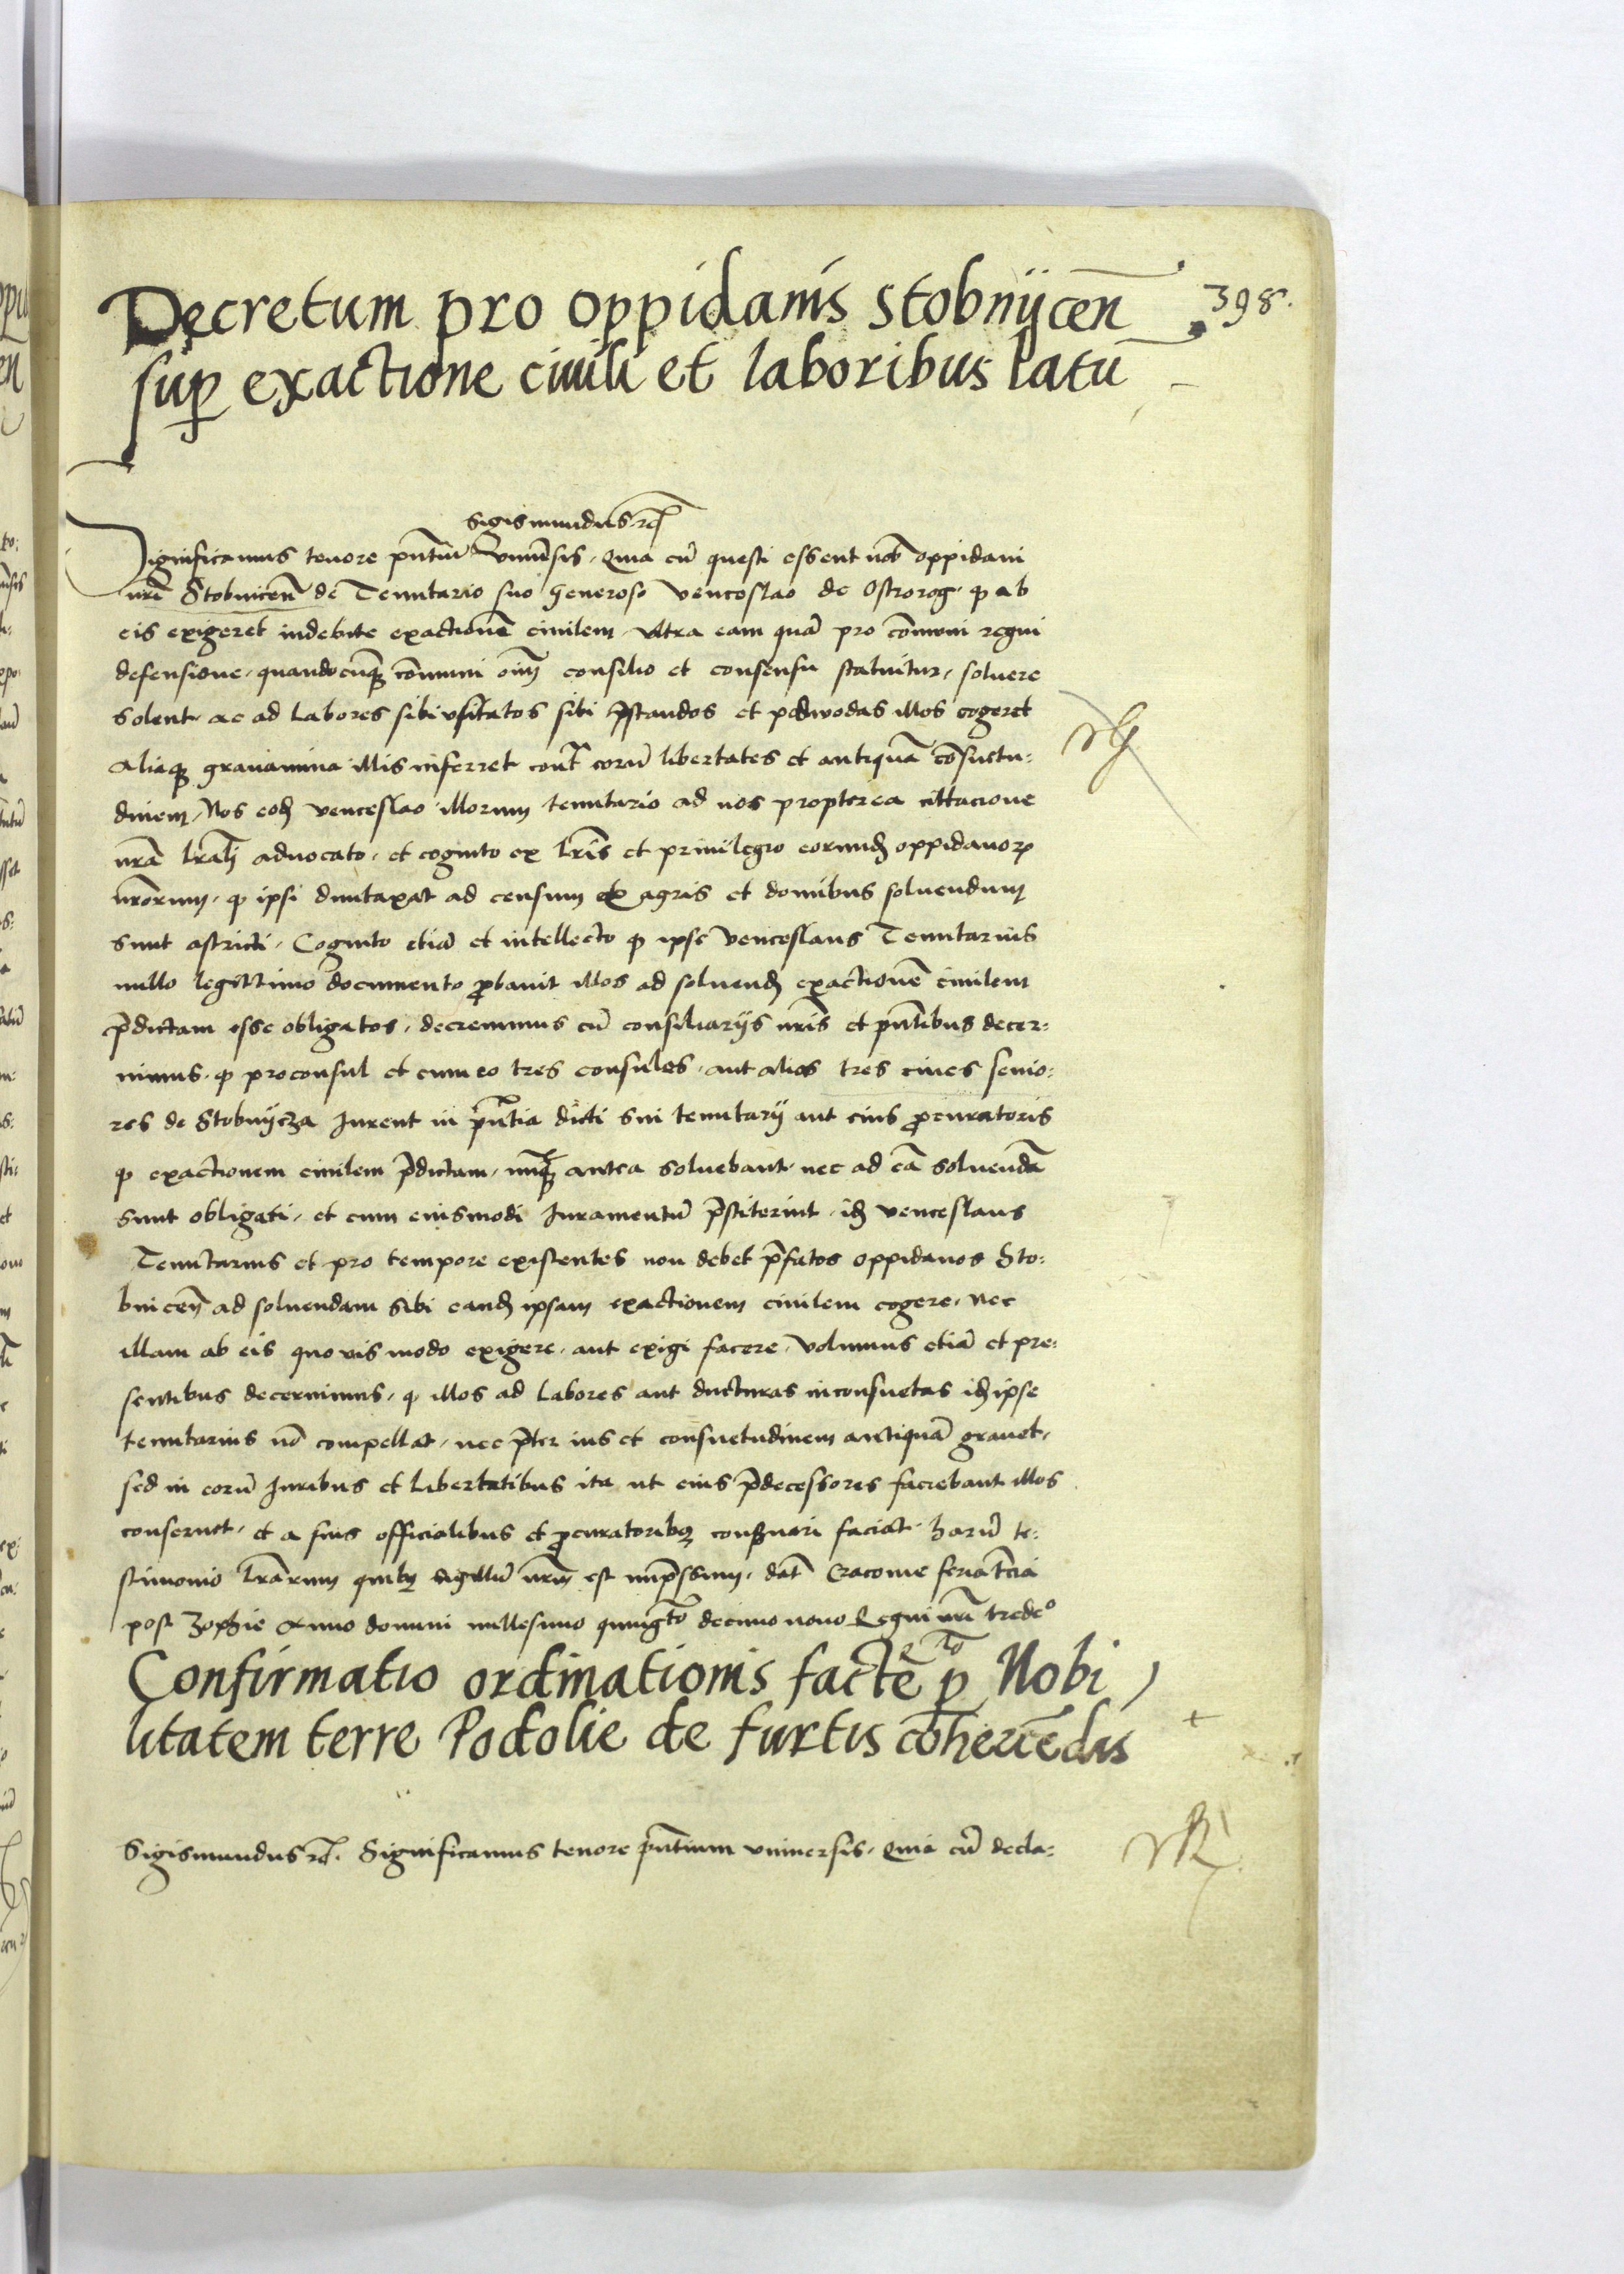 Decretum pro oppidanis Stobnijceñ 398.
sup exactione ciuili et laboribus latū
Sigismundus rē
Significamus tenore pñtiū Vniuersis, Quia cū questi essent nob oppidani
nr̄i Stobniceñ de Tenutario suo Generoso Venceslao de Ostrorog, q ab
eis exigeret indebite exactionē ciuilem, vltra eam quā pro cōmuni regni
defensione, quandocunq cōmuni oīm consilio et consensu statuitur, soluere
solent, ac ad labores sibi vsitatos sibi p̄standos et podwodas illos cogeret
aliaq grauamina illis inferret cont eorū libertates et antiquā cōsuetu:
dinem, Nos eod Venceslao illorum tenutario ad nos propterea cittacione
nrā lrāli aduocato, et cognito ex lrīs et priuilegio eorund oppidanoꝝ
nrōrum, q ipsi duntaxat ad censum ex agris et domibus soluendum
sunt astricti, Cognito etiā et intellecto q ipse Venceslaus Tenutarius
nullo legittimo documento ꝓbauit illos ad soluend exactionē ciuilem
p̄dictam esse obligatos, decreuimus cū consiliarijs nrīs et pn̄tibus decer:
nimus, q proconsul et cum eo tres consules, aut alios tres ciues senio:
res de Stobnijcza Jurent in pn̄tia dicti sui tenutarij aut eius ꝓcuratoris
q exactionem ciuilem p̄dictam, nunq antea soluebant, nec ad eā soluendā
sunt obligati, et cum eiusmodi Juramentū p̄stiterint, id Venceslaus
Tenutarius et pro tempore existentes non debet p̄fatos oppidanos Sto:
bniceñ ad soluendam sibi eand ipsam exactionem ciuilem cogere, nec
illam ab eis quouis modo exigere, aut exigi facere, Volumus etiā et pre:
sentibus decernimus, q illos ad labores aut ducturas inconsuetas id ipse
tenutarius nō compellat, nec p̄ter ius et consuetudinem antiquā grauet,
sed in eorū Juribus et libertatibus ita ut eius p̄decessores faciebant illos
conseruet, et a suis officialibus et ꝓcuratoribꝫ conseruari faciat, harū te:
stimonio lrārum quibꝫ sigillū nrm̄ est imp̄ssum, dat̄ Cracouie feria tcīa
post Zophie Anno domini millesimo quingto decimo nono Regni nrī tredeº
Confirmatio ordinationis facte p Nobi
litatem terre Podolie de furtis cohercēdis
Sigismundus rē. Significamus tenore pn̄tium vniuersis, Quia cū decla: